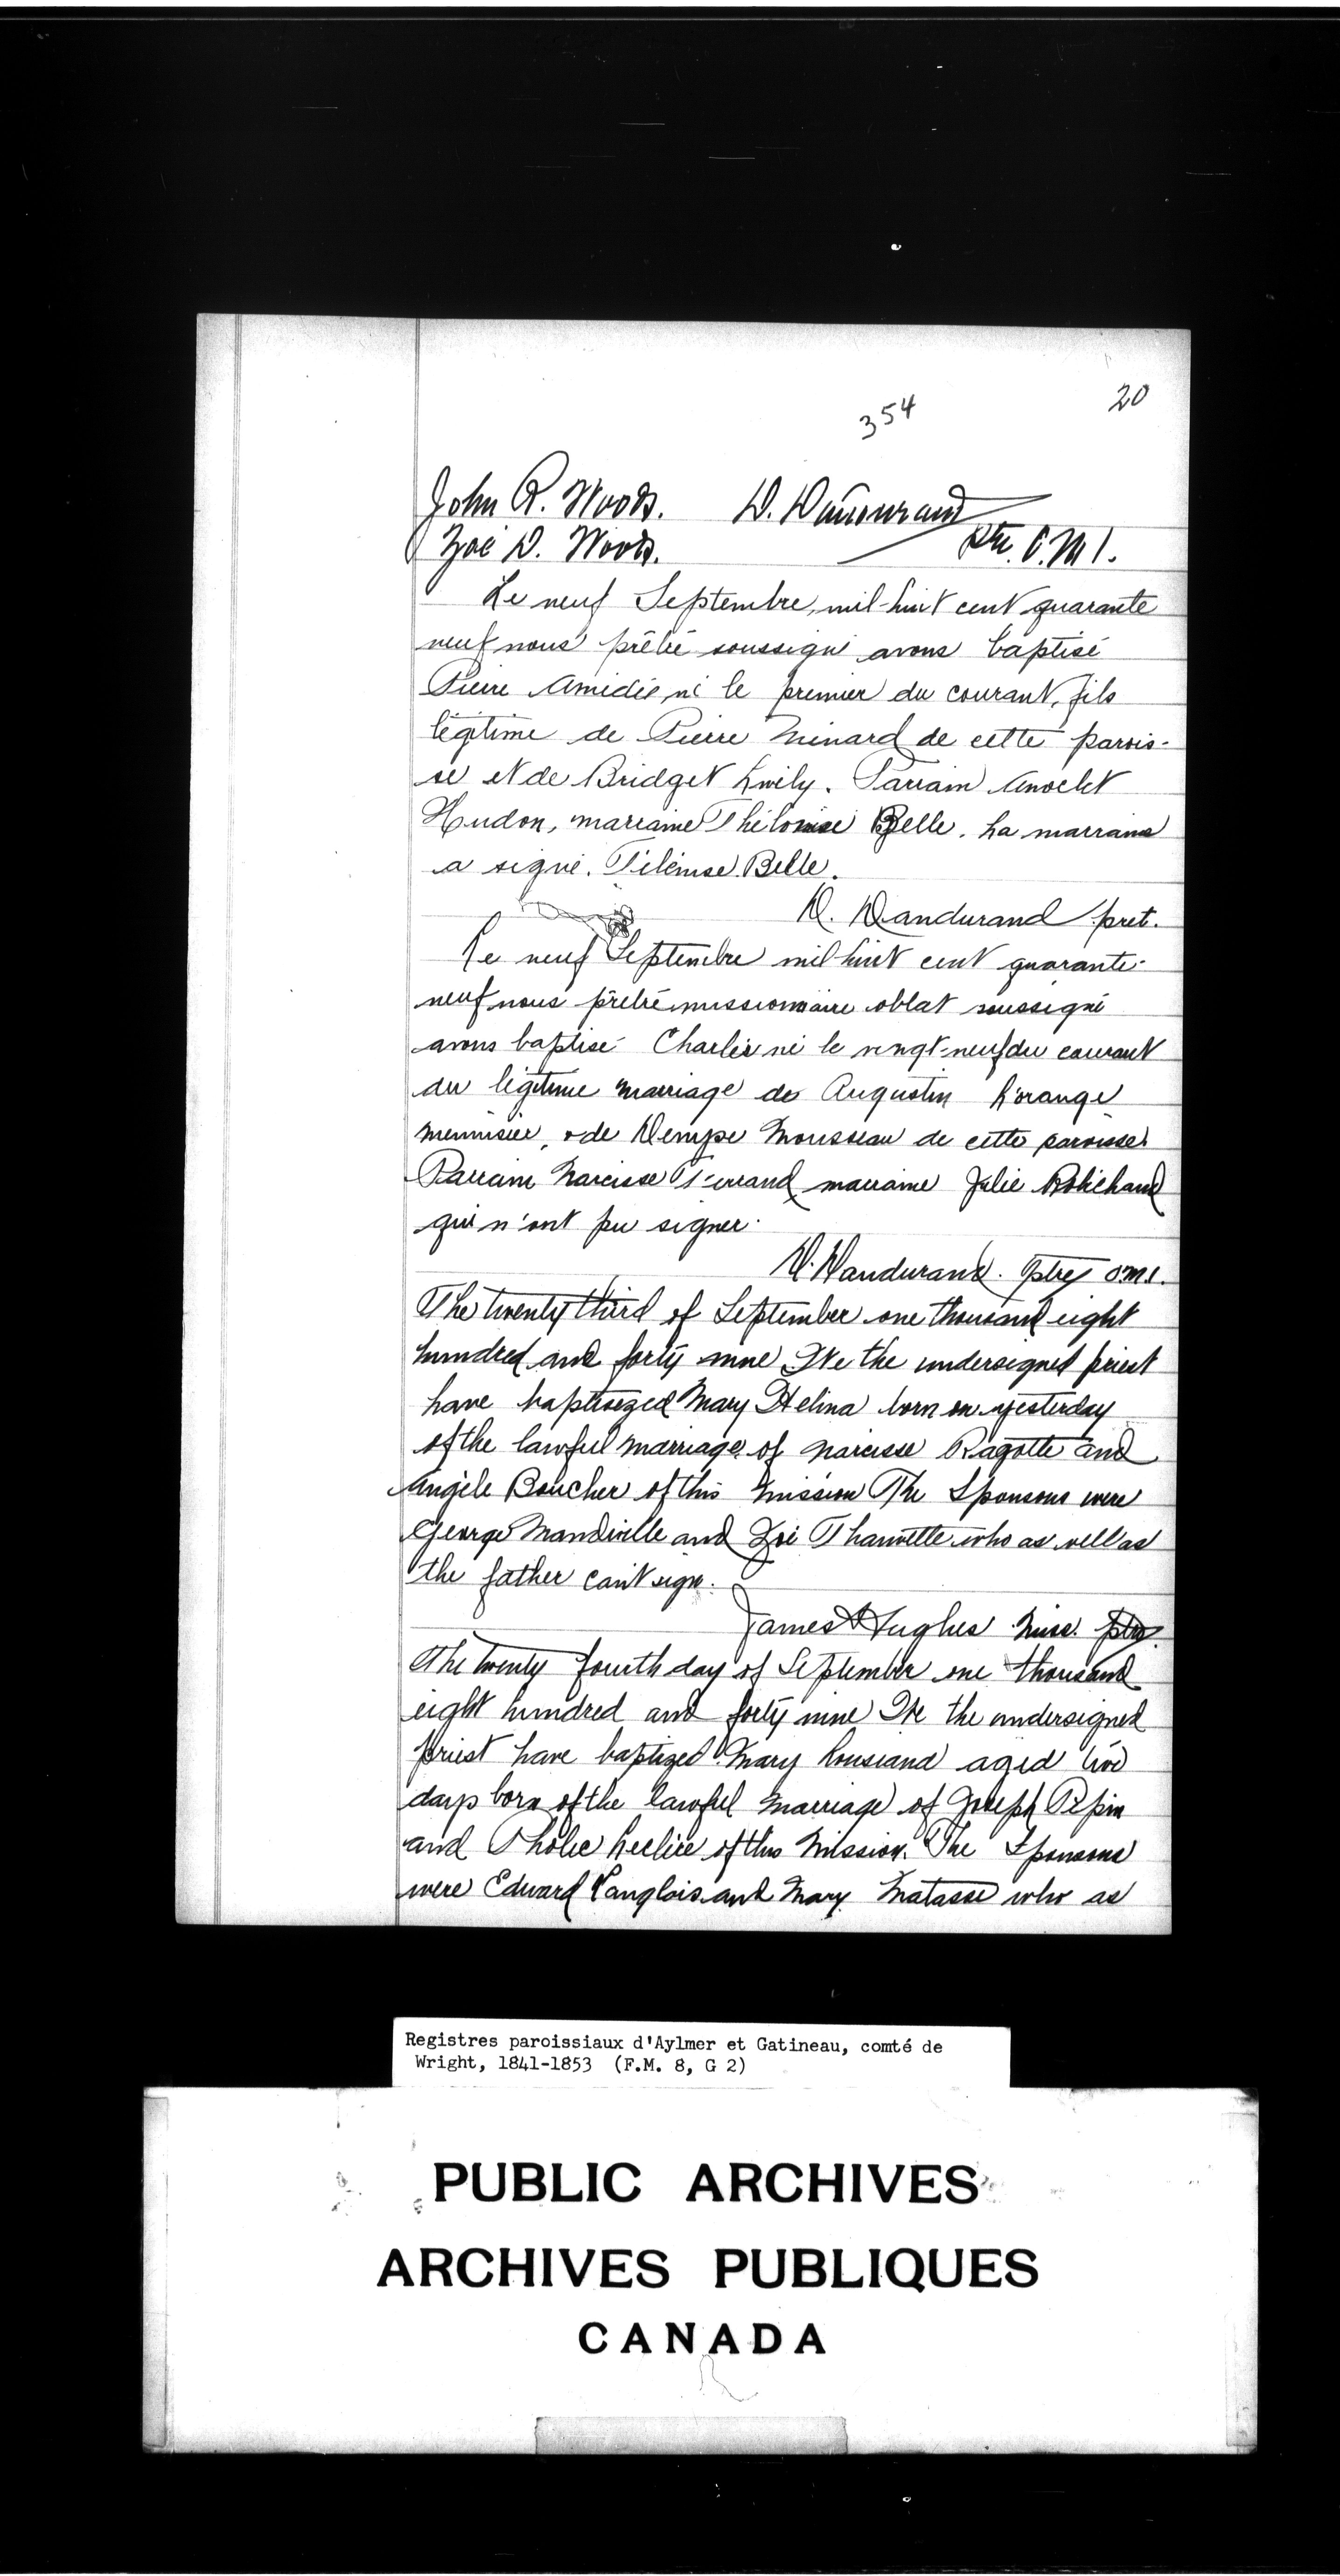 20
354
John R. Woods. D. Dandurand
Zoé D. Woods. Ptr. O.M.I.
Le neuf Septembre, mil-huit cent quarante
neuf nous prêtre soussigné avons baptisé
Pierre Amidée, né le premier du courant, fils
légitime de Pierre Minard de cette parois-
se et de Bridget Livily. Parrain Anoclet
Hudon, marraine Thélomise Belle. La marraine
a signé. Tilémse Belle.
D. Dandurand pret.
Le neuf Septembre mil huit cent quarante-
neuf nous prêtre missionnaire oblat soussigné
avons baptisé Charles né le vingt-neuf du courant
du légitime marriage de Augustin Lorange
menuisier, & de Mousseau de cette paroisse.
Parrain Narcisse marraine Julie Robichaud
qui n'ont pu signer.
D. Dandurand. Ptre O.M.I.
The twenty third of September one thousand eight
hundred and forty nine We the undersigned priest
have baptisezed Mary Helina born on yesterday
of the lawful marriage of Narcisse Ragotte and
Angèle Boucher of this Mission The Sponsons were
George Mandville and Zoé Thauvette who as well as
the father can't sign.
James Hughes Miss. ptre
The twenty fourth day of September one thousand
eight hundred and forty nine We the undersigned
priest have baptized Mary Lousiand aged two
days born of the lawful Marriage of Joseph Pépin
and Pholie Leclire of this Mission. The Sponsons
were Edward Langlois and Mary Matasse who as
Registres paroissiaux d'Aylmer et Gatineau, comté de
Wright, 1841-1853 (F.M. 8, G 2)
PUBLIC ARCHIVES
ARCHIVES PUBLIQUES
CANADA